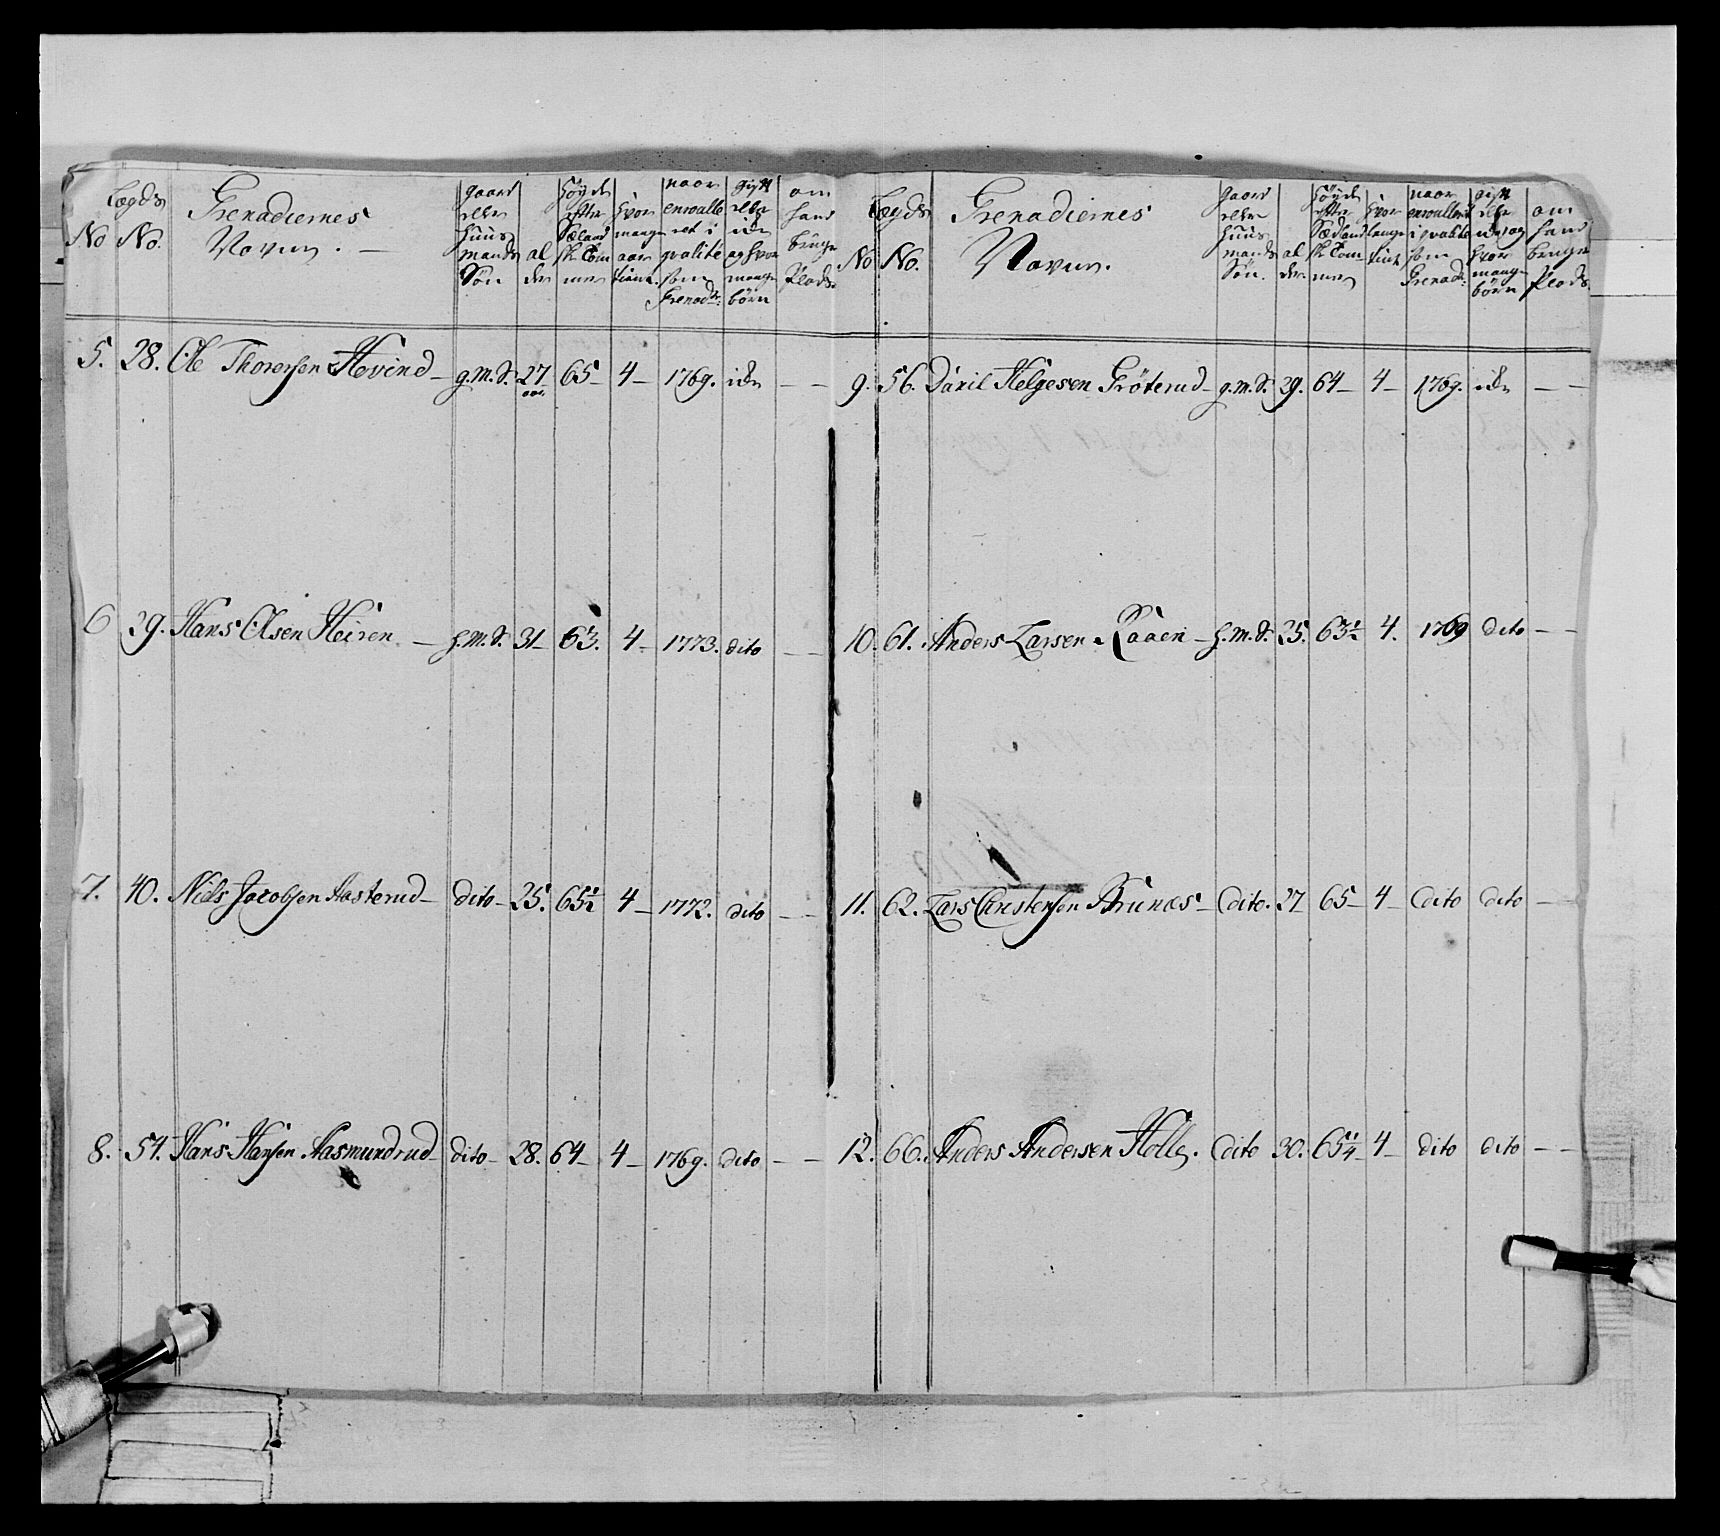 No
Lægds No.
Grenadiernes Navne. —
gaard eller huus mands Søn
al der
Høyde efter Sæland sk: Tom mer
hvor mange aar tient.
naar enroulle ret i qvalité som Grenadr:
gift eller ei og hvor mange børn
om hand bruger Plads.
5. 28. Ole Thoresen Hovind — g.M.S. 27 aar 65 — 4 — 1769. — —
6 39. Hans Olsen Heiren — h.M.S. 31 — 63. 4 — 1773. dito — —
7. 40. Niels Jacobsen Aasterud — dito — 25. 65½ 4 — 1772. dito — —
8. 54. Hans Hansen Aasmundrud dito — 28. 64 — 4 — 1769. dito — —
No
Lægds No.
Grenadiernes Navne.
gaard eller huus mands Søn.
al der.
Høyde efter Sædland sk Tom mer
hvor længe tient
naar enrouller i qvalité som Grenadr:
gift eller ei og hvor mange børn
om hand bruger Plads.
9. 56. Helgesen Grøterud — g.M.S. 29. 64 — 4 — 1769. — —
10. 61. Anders Larsen Raaen — h.M.S. 25. 63½ 4. 1769 dito — —
11. 62. Lars Christensen Brunæs — dito. 27 65 — 4 — dito dito — —
12. 66. Anders Andersen Holle. dito 30. 65¼ 4 — dito dito — —